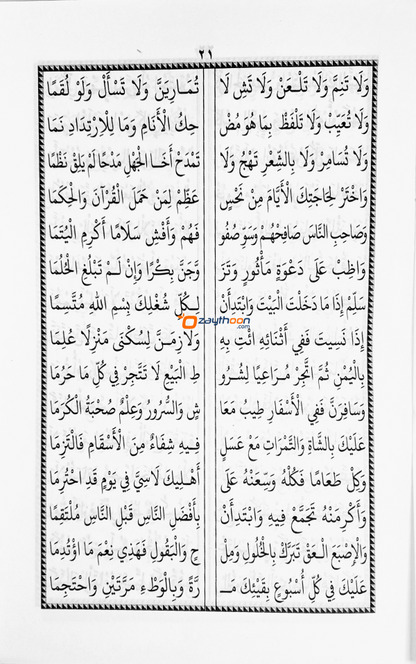 ٢١
وَلَا تَنِمَّ وَلَا تَلْعَنْ وَلَا تَشِ لَا تُمَارِيَنَّ وَلَا تَسْأَلْ وَلَوْ لُقَمَا
وَلَا تُعَيِّبْ وَلَا تَلْفَظْ بِمَا هُوَ مُضْ حِكُ الْأَنَامِ وَمَا لِلْاِرْتِدَادِ نَمَا
وَلَا تُسَامِرْ وَلَا بِالشِّعْرِ تَهْجُ وَلَا تَمْدَحْ أَخَا الْجَهْلِ مَدْحًا لَمْ يَلِقْ نَظْمَا
وَاخْتَرْ لِحَاجَتِكَ الْأَيَّامَ مِنْ نَحْسٍ عَظِّمْ لِمَنْ حَمَلَ الْقُرْآنَ وَالْحِكَمَا
وَصَاحِبِ النَّاسَ صَافِحْهُمْ وَسَوِّ صُفُو فَهُمْ وَأَفْشِ سَلَامًا أَكْرِمِ الْيُتَمَا
وَاظِبْ عَلَى دَعْوَةٍ مَأْثُورٍ وَتَزَ وَّجَنَّ بِكْرًا وَإِنْ لَمْ تَبْلُغِ الْحُلُمَا
سَلِّمْ إِذَا مَا دَخَلْتَ الْبَيْتَ وَابْتَدِأَنْ لِكُلِّ شُغْلِكَ بِسْمِ اللهِ مُتَّسِمَا
Zaythoon.com
إِذَا نَسِيتَ فَفِي أَثْنَائِهِ ائْتِ بِهِ وَلَازِمَنَّ لِسُكْنَى مَنْزِلًا عُلِمَا
بِالْيُمْنِ ثُمَّ اتَّجِرْ مُرَاعِيًا لِشُرُو طِ الْبَيْعِ لَا تَتَّجِرْ فِي كُلِّ مَا حَرُمَا
وَسَافِرَنَّ فَفِي الْأَسْفَارِ طِيبُ مَعَا شٍ وَالسُّرُورُ وَعِلْمٌ صُحْبَةُ الْكُرَمَا
عَلَيْكَ بِالشَّاةِ وَالتَّمَرَاتِ مَعْ عَسَلٍ فِيهِ شِفَاءٌ مِنَ الْأَسْقَامِ فَالْتَزِمَا
وَكِلْ طَعَامًا فَكُلْهُ وَسِّعَنْهُ عَلَى أَهْلِيكَ لَاسِيَّ فِي يَوْمٍ قَدِ احْتُرِمَا
وَأَكْرِمَنْهُ تَجَمَّعْ فِيهِ وَابْتَدِأَنْ بِأَفْضَلِ النَّاسِ قَبْلَ النَّاسِ مُلْتَقِمَا
وَالْإِصْبَعَ الْعَقْ تَبَرَّكْ بِالْخُلُولِ وَمِلْ حٍ وَالْبَقُولِ فَهَذِي نِعْمَ مَا اؤْتُدِمَا
عَلَيْكَ فِي كُلِّ أُسْبُوعٍ بِقَيْئِكَ مَـ رَّةً وَبِالْوَطْءِ مَرَّتَيْنِ وَاحْتَجِمَا